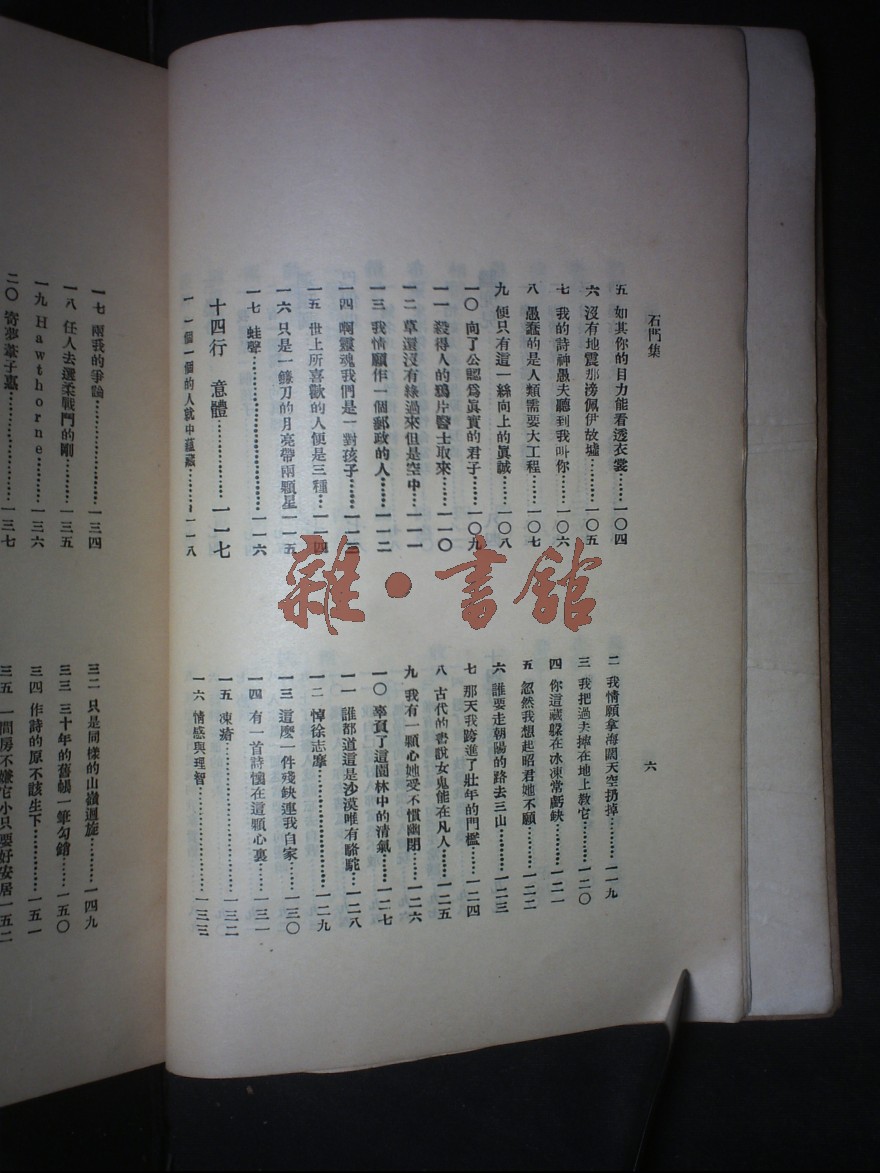 石門集
六
五 如其你的目力能看透衣裳……一〇四
六 沒有地震那滂佩伊故墟……一〇五
七 我的詩神愚夫聽到我叫你……一〇六
八 愚蠢的是人類需要大工程……一〇七
九 便只有這一絲向上的眞誠……一〇八
一〇 向了公認爲眞實的君子……一〇九
一一 殺得人的鴉片醫士取來……一一〇
一二 草還沒有綠過來但是空中……一一一
一三 我情願作一個郵政的人……一一二
一四 啊靈魂我們是一對孩子……一一三
一五 世上所喜歡的人便是三種……一一四
一六 只是一鐮刀的月亮帶兩顆星……一一五
一七 蛙聲……一一六
十四行 意體……一一七
一 一個一個的人就中蘊藏……一一八
二 我情願拿海闊天空扔掉……一一九
三 我把過去摔在地上教它……一二〇
四 你這藏躲在冰凍常虧缺……一二一
五 忽然我想起昭君她不願……一二二
六 誰要走朝陽的路去三山……一二三
七 那天我跨進了壯年的門檻……一二四
八 古代的書說女鬼能在凡人……一二五
九 我有一顆心她受不慣幽閉……一二六
一〇 辜負了這園林中的清氣……一二七
一一 誰都道這是沙漠唯有駱駝……一二八
一二 悼徐志摩……一二九
一三 這麼一件殘缺連我自家……一三〇
一四 有一首詩懷在這顆心裏……一三一
一五 凍瘡……一三二
一六 情感與理智……一三三
一七 兩我的爭論……一三四
一八 任人去選柔戰鬥的剛……一三五
一九 Hawthorne……一三六
二〇 寄夢葦子惠……一三七
三二 只是同樣的山嶺迴旋……一四九
三三 三十年的舊帳一筆勾銷……一五〇
三四 作詩的原不該坐下……一五一
三五 一間房不嫌它小只要好安居一五二
雜·書館